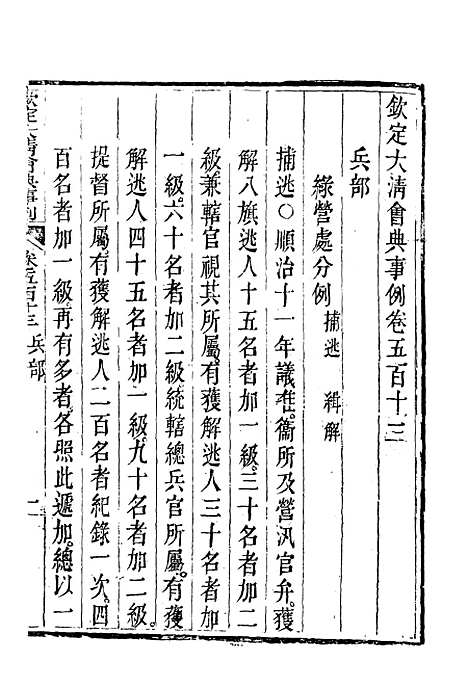 欽定大清會典事例卷五百十三
兵部
綠營處分例 捕逃 緝解
捕逃○順治十一年議准。衞所及營汛官弁。獲
解八旗逃人十五名者加一級。三十名者加二
級。兼轄官視其所屬。有獲解逃人三十名者加
一級。六十名者加二級。統轄總兵官所屬。有獲
解逃人四十五名者加一級。九十名者加二級。
提督所屬。有獲解逃人二百名者紀錄一次。四
百名者加一級。再有多者。各照此遞加。總以一
欽定大清會典事例 卷五百十三 兵部 一